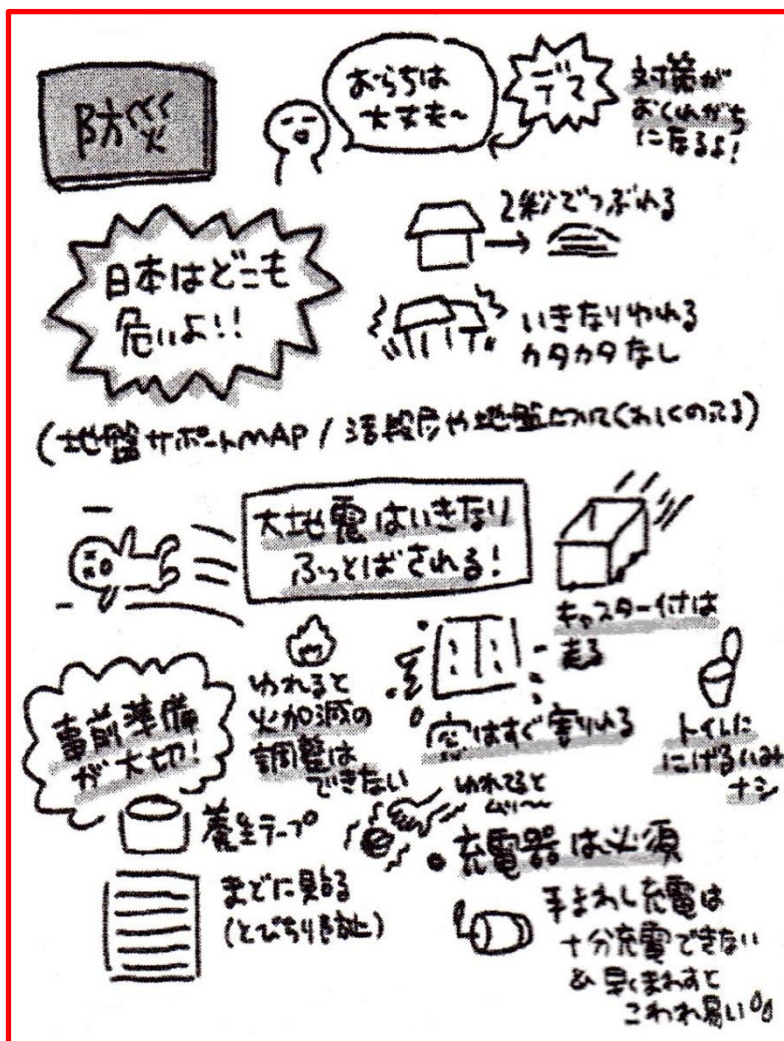 防災
おうちは
大丈夫~
デマ
対策が
おくれがち
になるよ!
日本はどこも
危いよ!!
2秒でつぶれる
いきなりゆれる
カタカタなし
(地盤サポートMAP / 活断層や地盤についてくわしくのってる)
大地震はいきなり
ふっとばされる!
キャスター付は
走る
事前準備
が大切!
ゆれると
火加減の
調整は
できない
窓はすぐ割れる
トイレに
にげる
ナシ
ゆれてると
ムリ~
養生テープ
まどに貼る
(とびちり防止)
・充電器は必須
手まわし充電は
十分充電できない
& 早くまわすと
こわれ易い